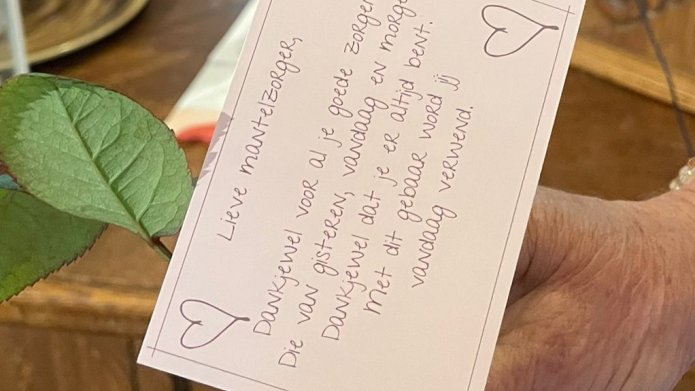 Lieve mantelzorger,
Dankjewel voor al je goede zorgen
Die van gisteren, vandaag en morge
Dankjewel dat je er altijd bent.
Met dit gebaar word jij
vandaag verwend.